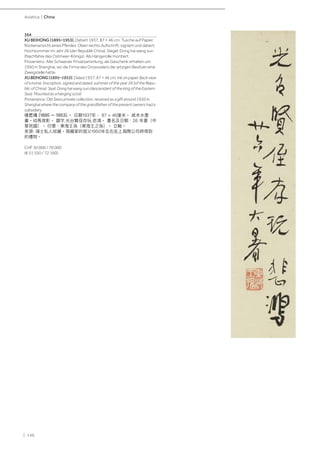 Asiatica | China
344
XU BEIHONG (1895–1953), Datiert 1937, 87 × 46 cm. Tusche auf Papier.
Rückenansicht eines Pferdes. Oben rechts Aufschrift, signiert und datiert:
Hochsommer im Jahr 26 (der Republik China). Siegel: Dong hai wang sun
(Nachfahre des Ostmeer-Königs). Als Hängerolle montiert.
Provenienz: Alte Schweizer Privatsammlung, als Geschenk erhalten um
1950 in Shanghai, wo die Firma des Grossvaters der jetzigen Besitzer eine
Zweigstelle hatte.
XU BEIHONG (1895–1953). Dated 1937, 87 × 46 cm. Ink on paper. Back view
of a horse. Inscription, signed and dated: summer of the year 26 (of the Repu-
blic of China). Seal: Dong hai wang sun (descendant of the king of the Eastern
Sea). Mounted as a hanging scroll.
Provenance: Old Swiss private collection, received as a gift around 1950 in
Shanghai where the company of the grandfather of the present owners had a
subsidiary.
CHF 50 000 / 70 000
(€ 51 550 / 72 160)
光台賢侄存玩 悲鴻
廿六年大暑
| 146